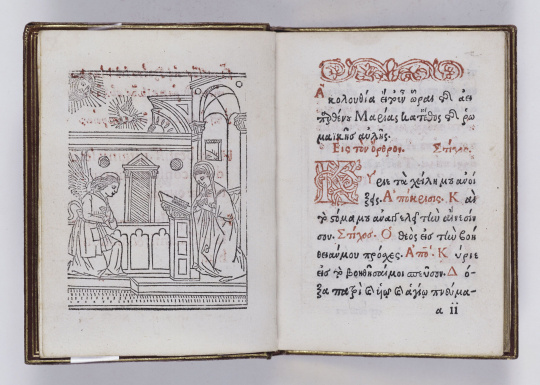 Ἀ
κολουθία ἤγουν ὧραι τῆς ἀει
παρθένου Μαρίας κατ' ἔθος τῆς ῥω
μαϊκῆς αὐλῆς.
Εἰς τὸν ὄρθρον. Στίχος.
Κύριε τὰ χείλη μου ἀνοί
ξεις. Ἀπόκρισις. Καὶ
τὸ στόμα μου ἀναγγελεῖ τὴν αἴνεσίν
σου. Στίχος. Ὁ θεὸς εἰς τὴν βοή
θειάν μου πρόσχες. Ἀπό. Κύριε
εἰς τὸ βοηθῆσαί μοι σπεῦσον. Δό
ξα πατρὶ καὶ υἱῷ καὶ ἁγίῳ πνεύμα-
a ii